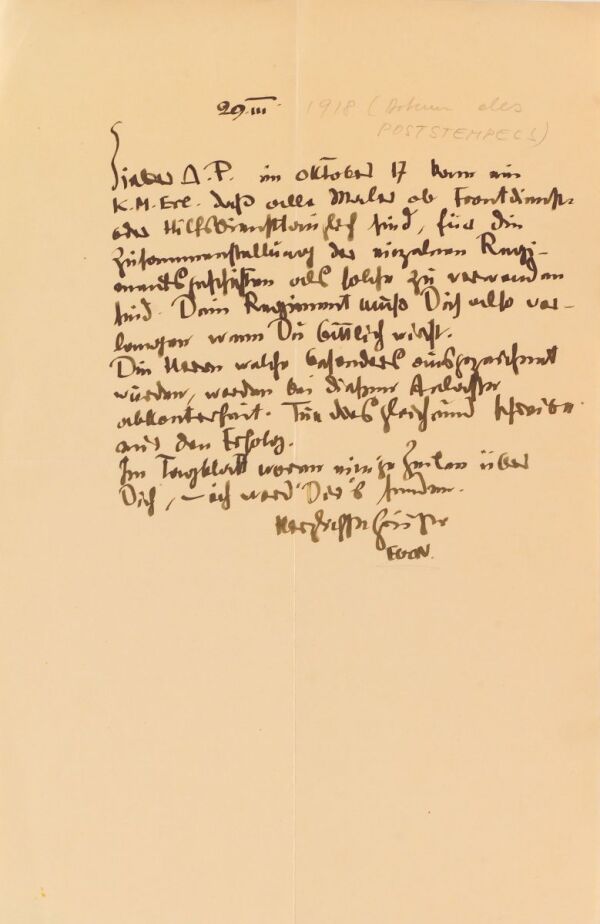 29. III. 1918 (Datum des
POSTSTEMPELS)
Lieber A. P. im Oktober 17 kam ein
K.M. Erl. daß alle Maler ob Frontdienst-
oder Hilfsdiensttauglich sind, für die
Zusammenstellung der einzelnen Regi-
mentsgeschichten als solche zu verwenden
sind. Dein Regiment muß Dich also ver-
langen wenn Du bittlich wirst.
Die Herren welche besonders ausgezeichnet
wurden, werden bei diesem Anlasse
abkonterfeit. Tue das gleich und schreibe
mir den Erfolg.
Im Tagblatt waren einige Zeilen über
Dich, – ich werd' Dir's senden.
Herzlichste Grüße
EGON.